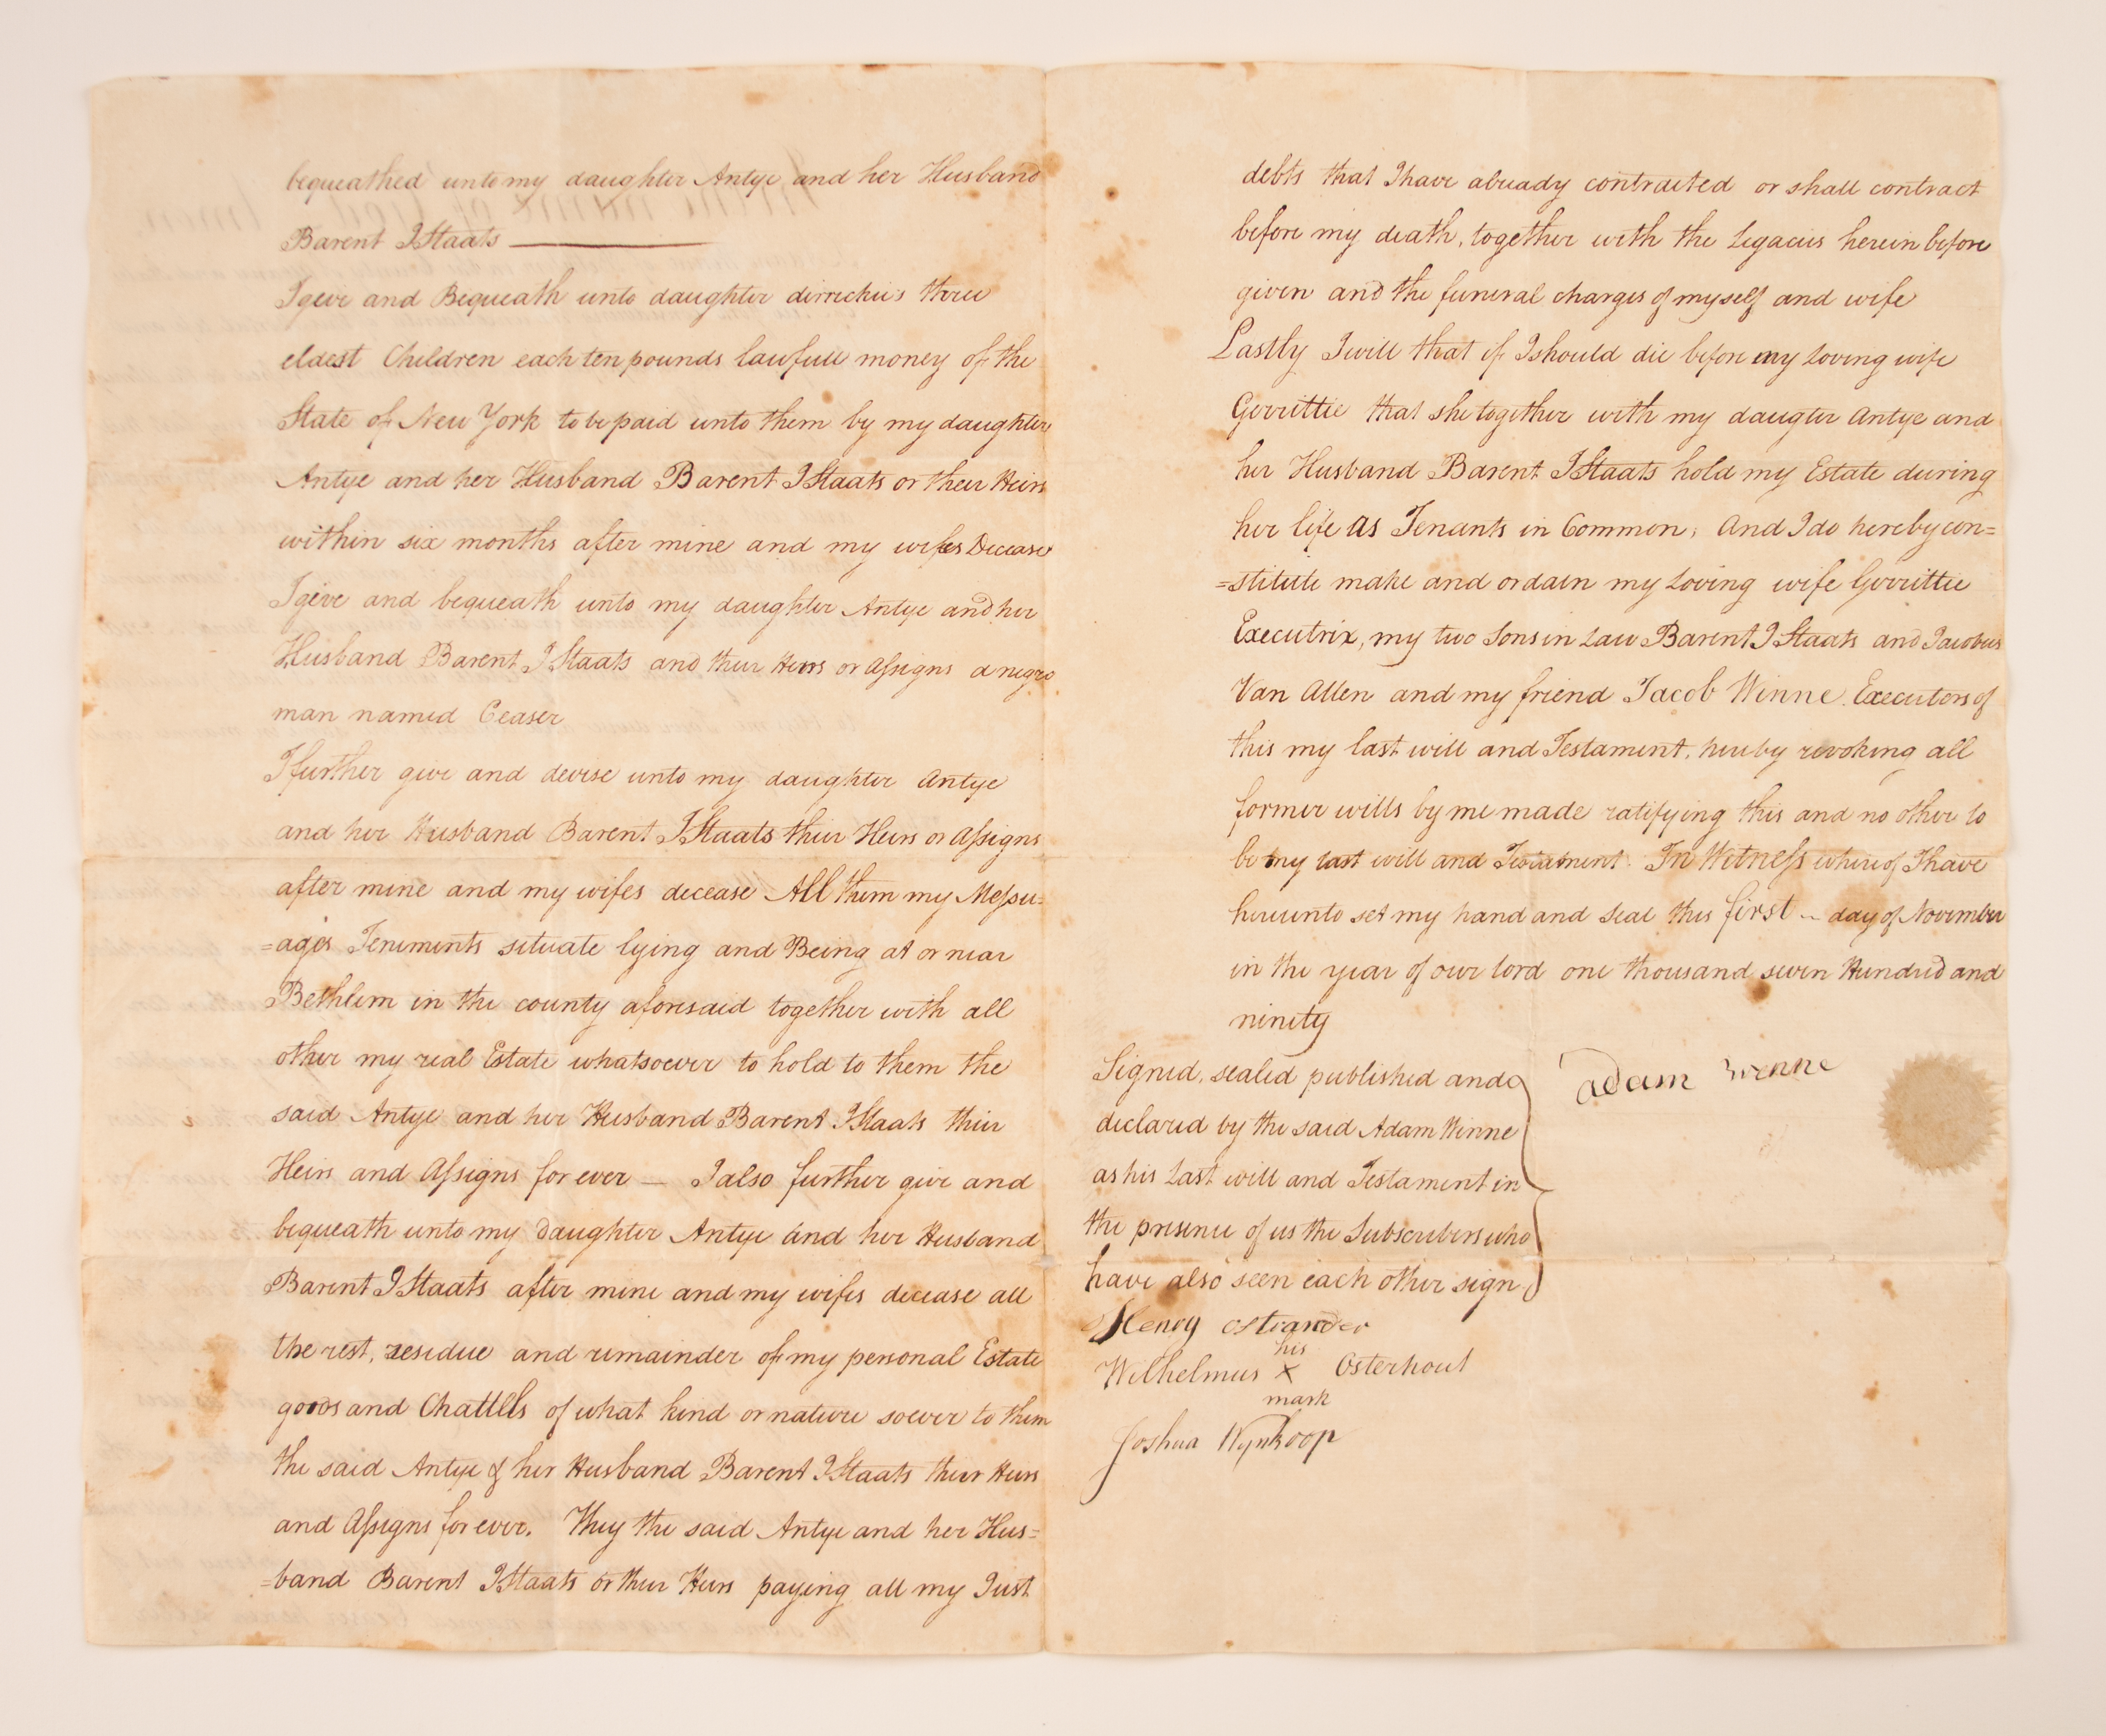 bequeathed unto my daughter Antye and her Husband
Barent I Staats
I give and Bequeath unto daughter dirrickie's three
eldest Children each ten pounds lawfull money of the
State of New York to be paid unto them by my daughter
Antye and her Husband Barent I Staats or their Heirs
within six months after mine and my wifes Decease
I give and bequeath unto my daughter Antye and her
Husband Barent I Staats and their Heirs or Assigns a negro
man named Ceaser
I further give and devise unto my daughter Antye
and her Husband Barent I Staats their Heirs or Assigns
after mine and my wifes decease All them my Messu=
=ages Teniments situate lying and Being at or near
Bethlem in the county aforesaid together with all
other my real Estate whatsoever to hold to them the
said Antye and her Husband Barent I Staats their
Heirs and Assigns for ever — I also further give and
bequeath unto my daughter Antye and her Husband
Barent I Staats after mine and my wifes decease all
the rest, residue and remainder of my personal Estate
goods and Chattels of what kind or nature soever to them
the said Antye & her Husband Barent I Staats their Heirs
and Assigns for ever. They the said Antye and her Hus=
=band Barent I Staats or their Heirs paying all my Just
debts that I have already contracted or shall contract
before my death, together with the Legacies herein before
given and the funeral charges of myself and wife
Lastly I will that if I should die before my loving wife
Gerrittie that she together with my daugter Antye and
her Husband Barent I Staats hold my Estate during
her life as Tenants in Common, And I do hereby con=
=stitute make and ordain my Loving wife Gerrittie
Executrix, my two Sons in Law Barent I Staats and Jacobus
Van Allen and my friend Jacob Winne Executors of
this my last will and Testament, hereby revoking all
former wills by me made ratifying this and no other to
be my last will and Testament. In Witness whereof I have
hereunto set my hand and Seal this first day of November
in the year of our lord one thousand seven Hundred and
ninety
Signed, sealed published and
declared by the said Adam Winne
as his Last will and Testament in
the presence of us the Subscribers who
have also seen each other sign
Adam Winne
Henry Ostrander
his
Wilhelmus X Osterhout
mark
Joshua Wynkoop